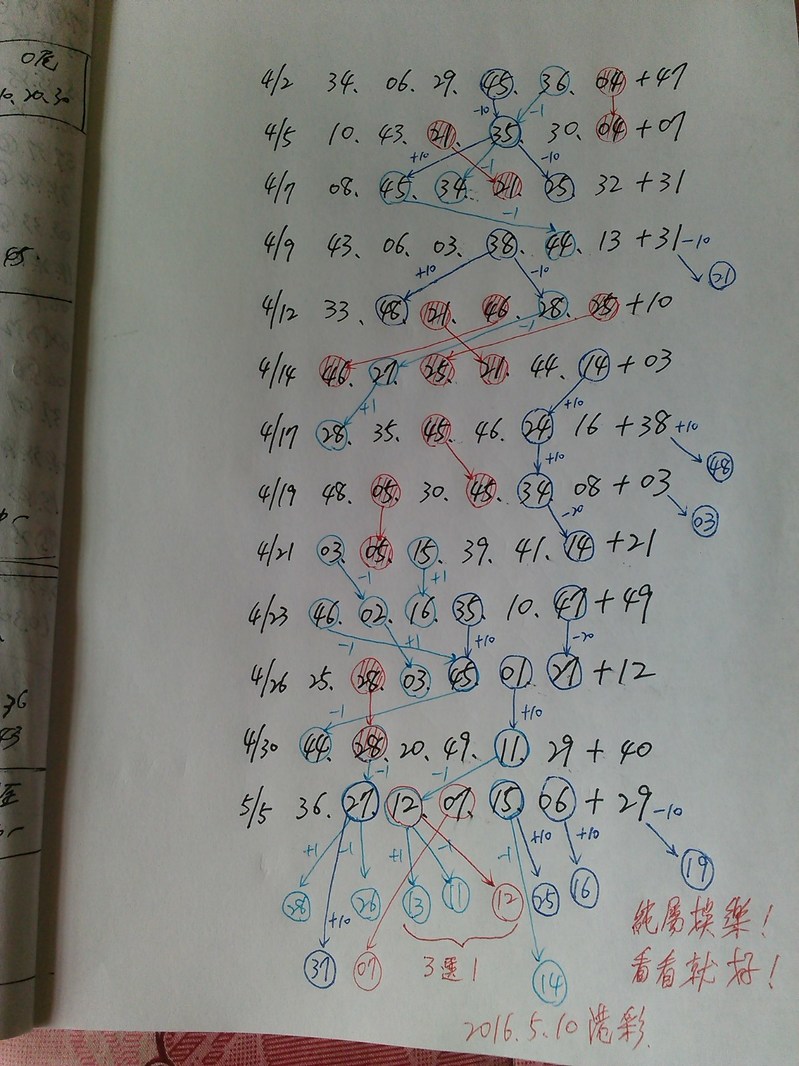 0尾
10.20.30
4/2 34. 06. 29. 45. 36. 04 + 47
-10 -1
4/5 10. 43. 21. 35. 30. 04 + 07
+10 -1 -10
4/7 08. 45. 34. 21. 25 32 + 31
-1
4/9 43. 06. 03. 38. 44. 13 + 31 -10
+10 -10 21
4/12 33. 48. 21. 46. 28. 25 + 10
-1
4/14 46. 27. 25. 21. 44. 14 + 03
+1 +10
4/17 28. 35. 45. 46. 24 16 + 38 +10
+10 48
4/19 48. 05. 30. 45. 34 08 + 03
-20 03
4/21 03. 05. 15. 39. 41. 14 + 21
-1 +1
4/23 46. 02. 16. 35. 10. 47 + 49
-1 +1 +10 -20
4/26 25. 28. 03. 45. 01. 27 + 12
-1 +10
4/30 44. 28. 20. 49. 11. 29 + 40
-1 -1
5/5 36. 27. 12. 07. 15. 06 + 29 -10
+1 -1 +1 -1 -1 +10 +10
28 26 13 11 12 25 16 19
+10
37 07 3選1 14
純屬娛樂!
看看就好!
2016.5.10港彩
36
43